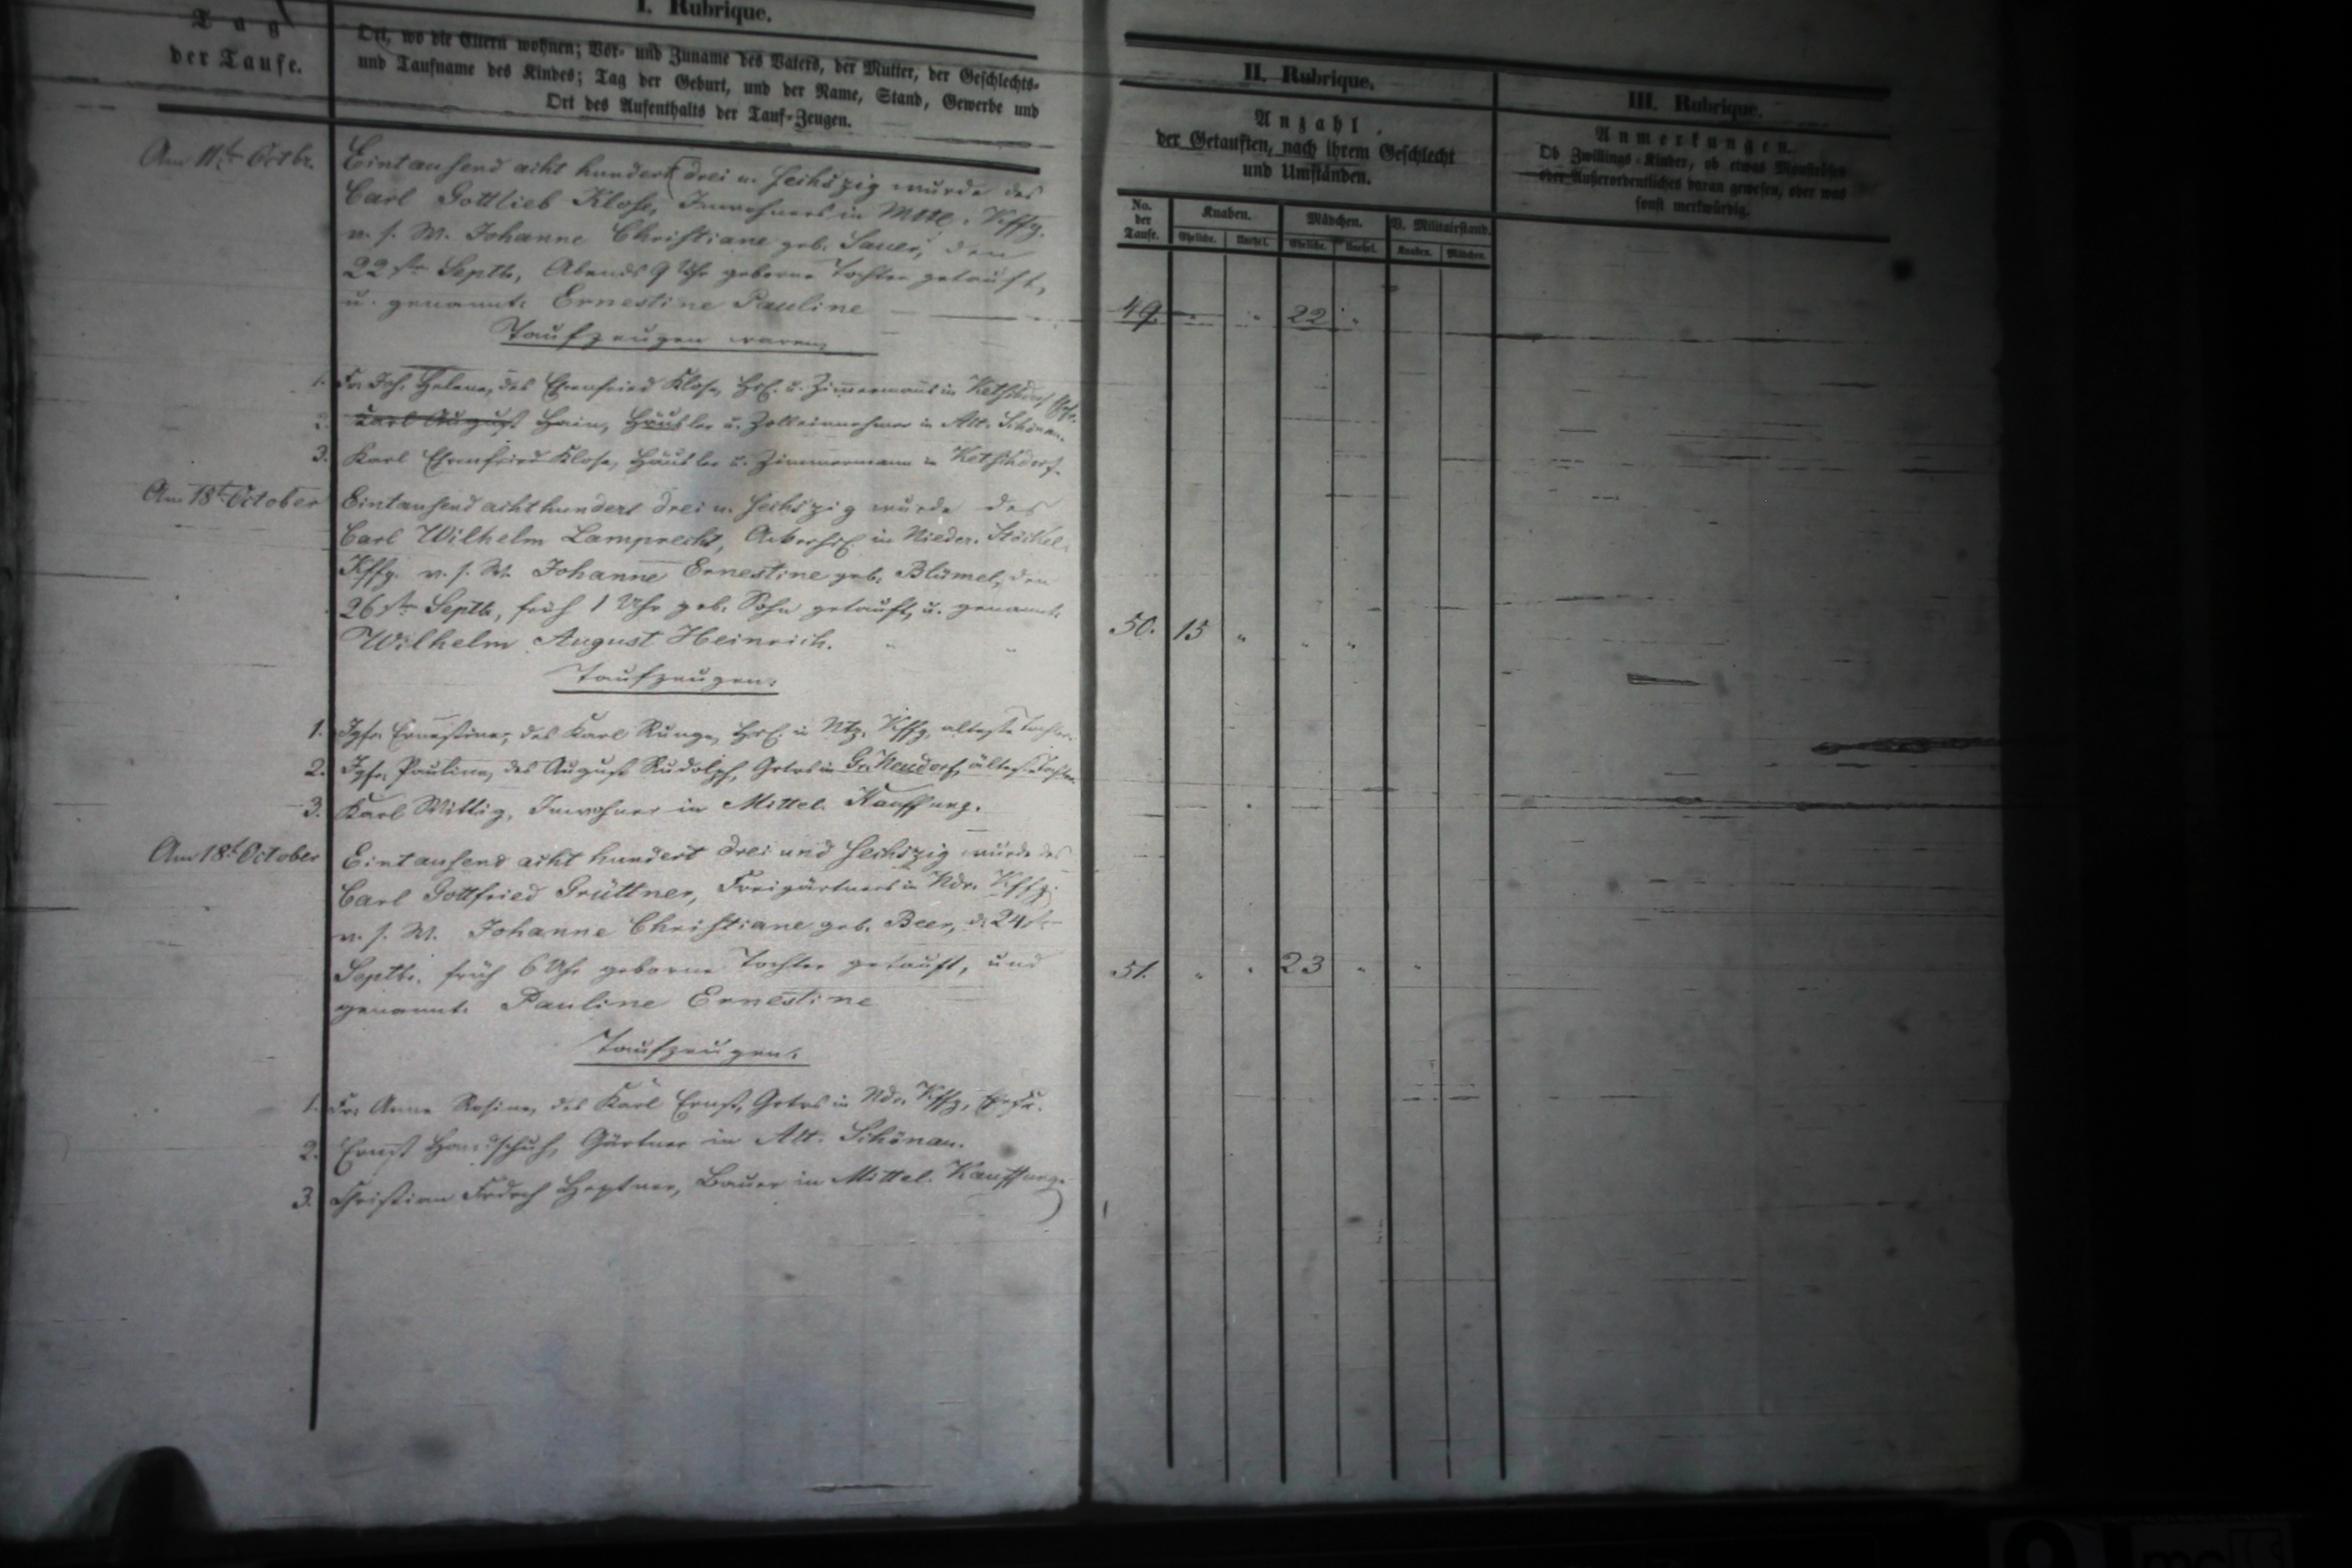 Tag
der Taufe.
I. Rubrique.
Ort, wo die Eltern wohnen; Vor- und Zuname des Vaters, der Mutter, der Geschlechts-
und Taufname des Kindes; Tag der Geburt, und der Name, Stand, Gewerbe und
Ort des Aufenthalts der Tauf-Zeugen.
II. Rubrique.
Anzahl
der Getauften, nach ihrem Geschlecht
und Umständen.
No. der Taufe.
Knaben.
Mädchen.
V. Militairstand.
Eheliche. Unehel. Eheliche. Unehel. Knaben. Mädchen.
III. Rubrique.
Anmerkungen.
Ob Zwillings-Kinder, ob etwas Monströses
oder Außerordentliches daran gewesen, oder was
sonst merkwürdig.
Am 11t. Octbr.
Eintausend acht hundert drei u. sechszig wurde des
Carl Gottlieb Klose, Inwohners in Mttl. Kffg.
u. s. W. Johanne Christiane geb. Sauer, den
22st. Septb, Abends 9 Uhr geborne Tochter getauft,
u. genannt: Ernestine Pauline
49. 22
Taufzeugen waren
1. Fr. Joh. Helene, des Ehrenfried Klose, Hsl. u. Zimmermans in Ketschdorf
2. Karl August Hain, Häusler u. Zolleinnehmer in Alt-Schönau.
3. Karl Ehrenfried Klose, Häusler u. Zimmermann in Ketschdorf.
Am 18t. October
Eintausend achthundert drei u. sechszig wurde des
Carl Wilhelm Lamprecht, in Nieder-Stöckel-
Kffg. u. s. W. Johanne Ernestine geb. Blümel, den
26st. Septb, früh 1 Uhr geb. Sohn getauft, u. genannt:
Wilhelm August Heinrich.
50. 15
Taufzeugen:
1. Jgfr. Ernestine, des Karl Runge, Hsl. in Kffg, älteste Tochter.
2. Jgfr. Pauline, des August Rudolph, Grtrs in Gr. Neudorf, älteste Tochter.
3. Karl Wittig, Inwohner in Mittel-Kauffung.
Am 18t. October
Eintausend acht hundert drei und sechszig wurde des
Carl Gottfried Grüttner, Freigärtners in Ndr. Kffg.
u. s. W. Johanne Christiane geb. Beer, d. 24st.
Septb. früh 6 Uhr geborne Tochter getauft, und
genannt: Pauline Ernestine
51. 23
Taufzeugen:
1. Fr. Anna Rosina, des Karl Ernst, Grtrs in Ndr. Kffg, Ehefr.
2. Ernst Handschuh, Gärtner in Alt-Schönau.
3. Christian Frdrch Heptner, Bauer in Mittel-Kauffung.